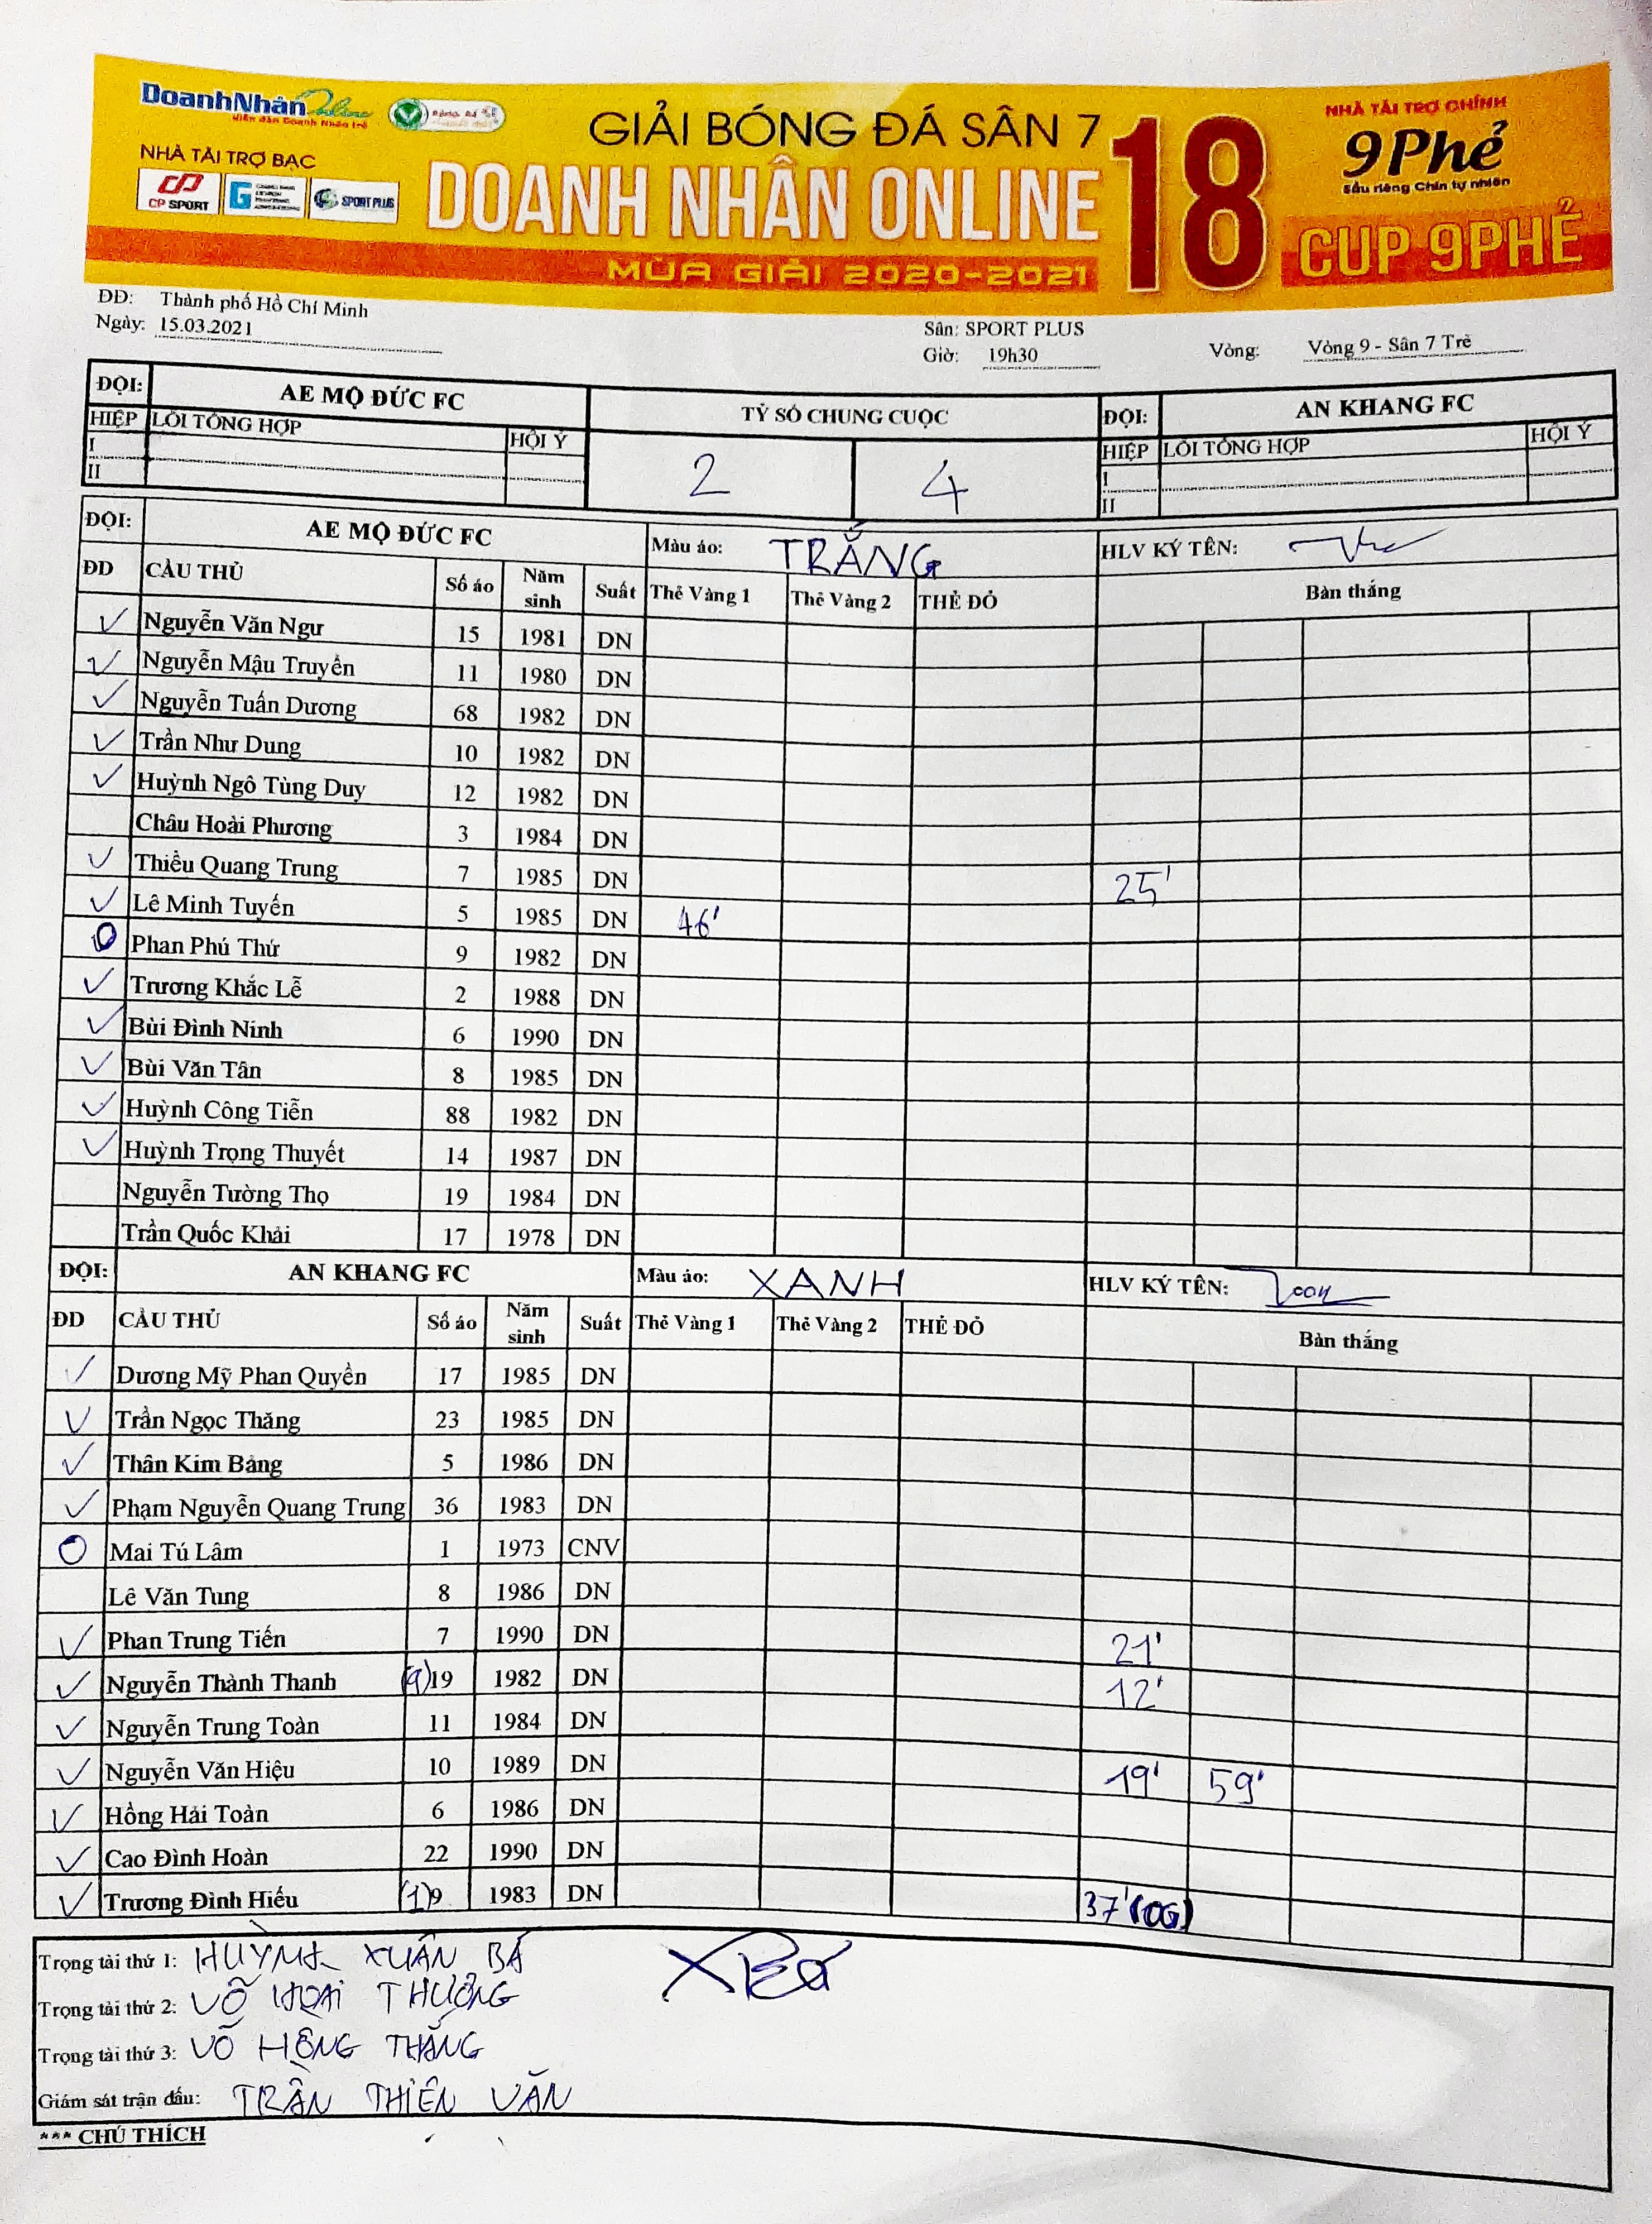 DoanhNhân Online
Diễn đàn Doanh Nhân trẻ
NHÀ TÀI TRỢ BẠC
CP SPORT
SPORT PLUS
GIẢI BÓNG ĐÁ SÂN 7
DOANH NHÂN ONLINE 18
MÙA GIẢI 2020-2021
NHÀ TÀI TRỢ CHÍNH
9Phẻ
Sầu riêng Chín tự nhiên
CUP 9PHẺ
ĐĐ: Thành phố Hồ Chí Minh
Ngày: 15.03.2021
Sân: SPORT PLUS
Giờ: 19h30
Vòng: Vòng 9 - Sân 7 Trẻ
ĐỘI: AE MỘ ĐỨC FC TỶ SỐ CHUNG CUỘC ĐỘI: AN KHANG FC
HIỆP LỖI TỔNG HỢP HỘI Ý 2 4 HIỆP LỖI TỔNG HỢP HỘI Ý
I I
II II
ĐỘI: AE MỘ ĐỨC FC Màu áo: TRẮNG HLV KÝ TÊN:
ĐD CẦU THỦ Số áo Năm sinh Suất Thẻ Vàng 1 Thẻ Vàng 2 THẺ ĐỎ Bàn thắng
✓ Nguyễn Văn Ngư 15 1981 DN
✓ Nguyễn Mậu Truyền 11 1980 DN
✓ Nguyễn Tuấn Dương 68 1982 DN
✓ Trần Như Dung 10 1982 DN
✓ Huỳnh Ngô Tùng Duy 12 1982 DN
Châu Hoài Phương 3 1984 DN
✓ Thiều Quang Trung 7 1985 DN 25'
✓ Lê Minh Tuyến 5 1985 DN 46'
O Phan Phú Thứ 9 1982 DN
✓ Trương Khắc Lễ 2 1988 DN
✓ Bùi Đình Ninh 6 1990 DN
✓ Bùi Văn Tân 8 1985 DN
✓ Huỳnh Công Tiễn 88 1982 DN
✓ Huỳnh Trọng Thuyết 14 1987 DN
Nguyễn Tường Thọ 19 1984 DN
Trần Quốc Khải 17 1978 DN
ĐỘI: AN KHANG FC Màu áo: XANH HLV KÝ TÊN:
ĐD CẦU THỦ Số áo Năm sinh Suất Thẻ Vàng 1 Thẻ Vàng 2 THẺ ĐỎ Bàn thắng
✓ Dương Mỹ Phan Quyền 17 1985 DN
✓ Trần Ngọc Thăng 23 1985 DN
✓ Thân Kim Bảng 5 1986 DN
✓ Phạm Nguyễn Quang Trung 36 1983 DN
O Mai Tú Lâm 1 1973 CNV
Lê Văn Tung 8 1986 DN
✓ Phan Trung Tiến 7 1990 DN 21'
✓ Nguyễn Thành Thanh (9)19 1982 DN 12'
✓ Nguyễn Trung Toàn 11 1984 DN
✓ Nguyễn Văn Hiệu 10 1989 DN 19' 59'
✓ Hồng Hải Toàn 6 1986 DN
✓ Cao Đình Hoàn 22 1990 DN
✓ Trương Đình Hiếu (1)9 1983 DN 37'(OG)
Trọng tài thứ 1: HUỲNH XUÂN BÁ
Trọng tài thứ 2: VÕ HOÀI THƯƠNG
Trọng tài thứ 3: VÕ HỒNG THẮNG
Giám sát trận đấu: TRẦN THIÊN VĂN
*** CHÚ THÍCH